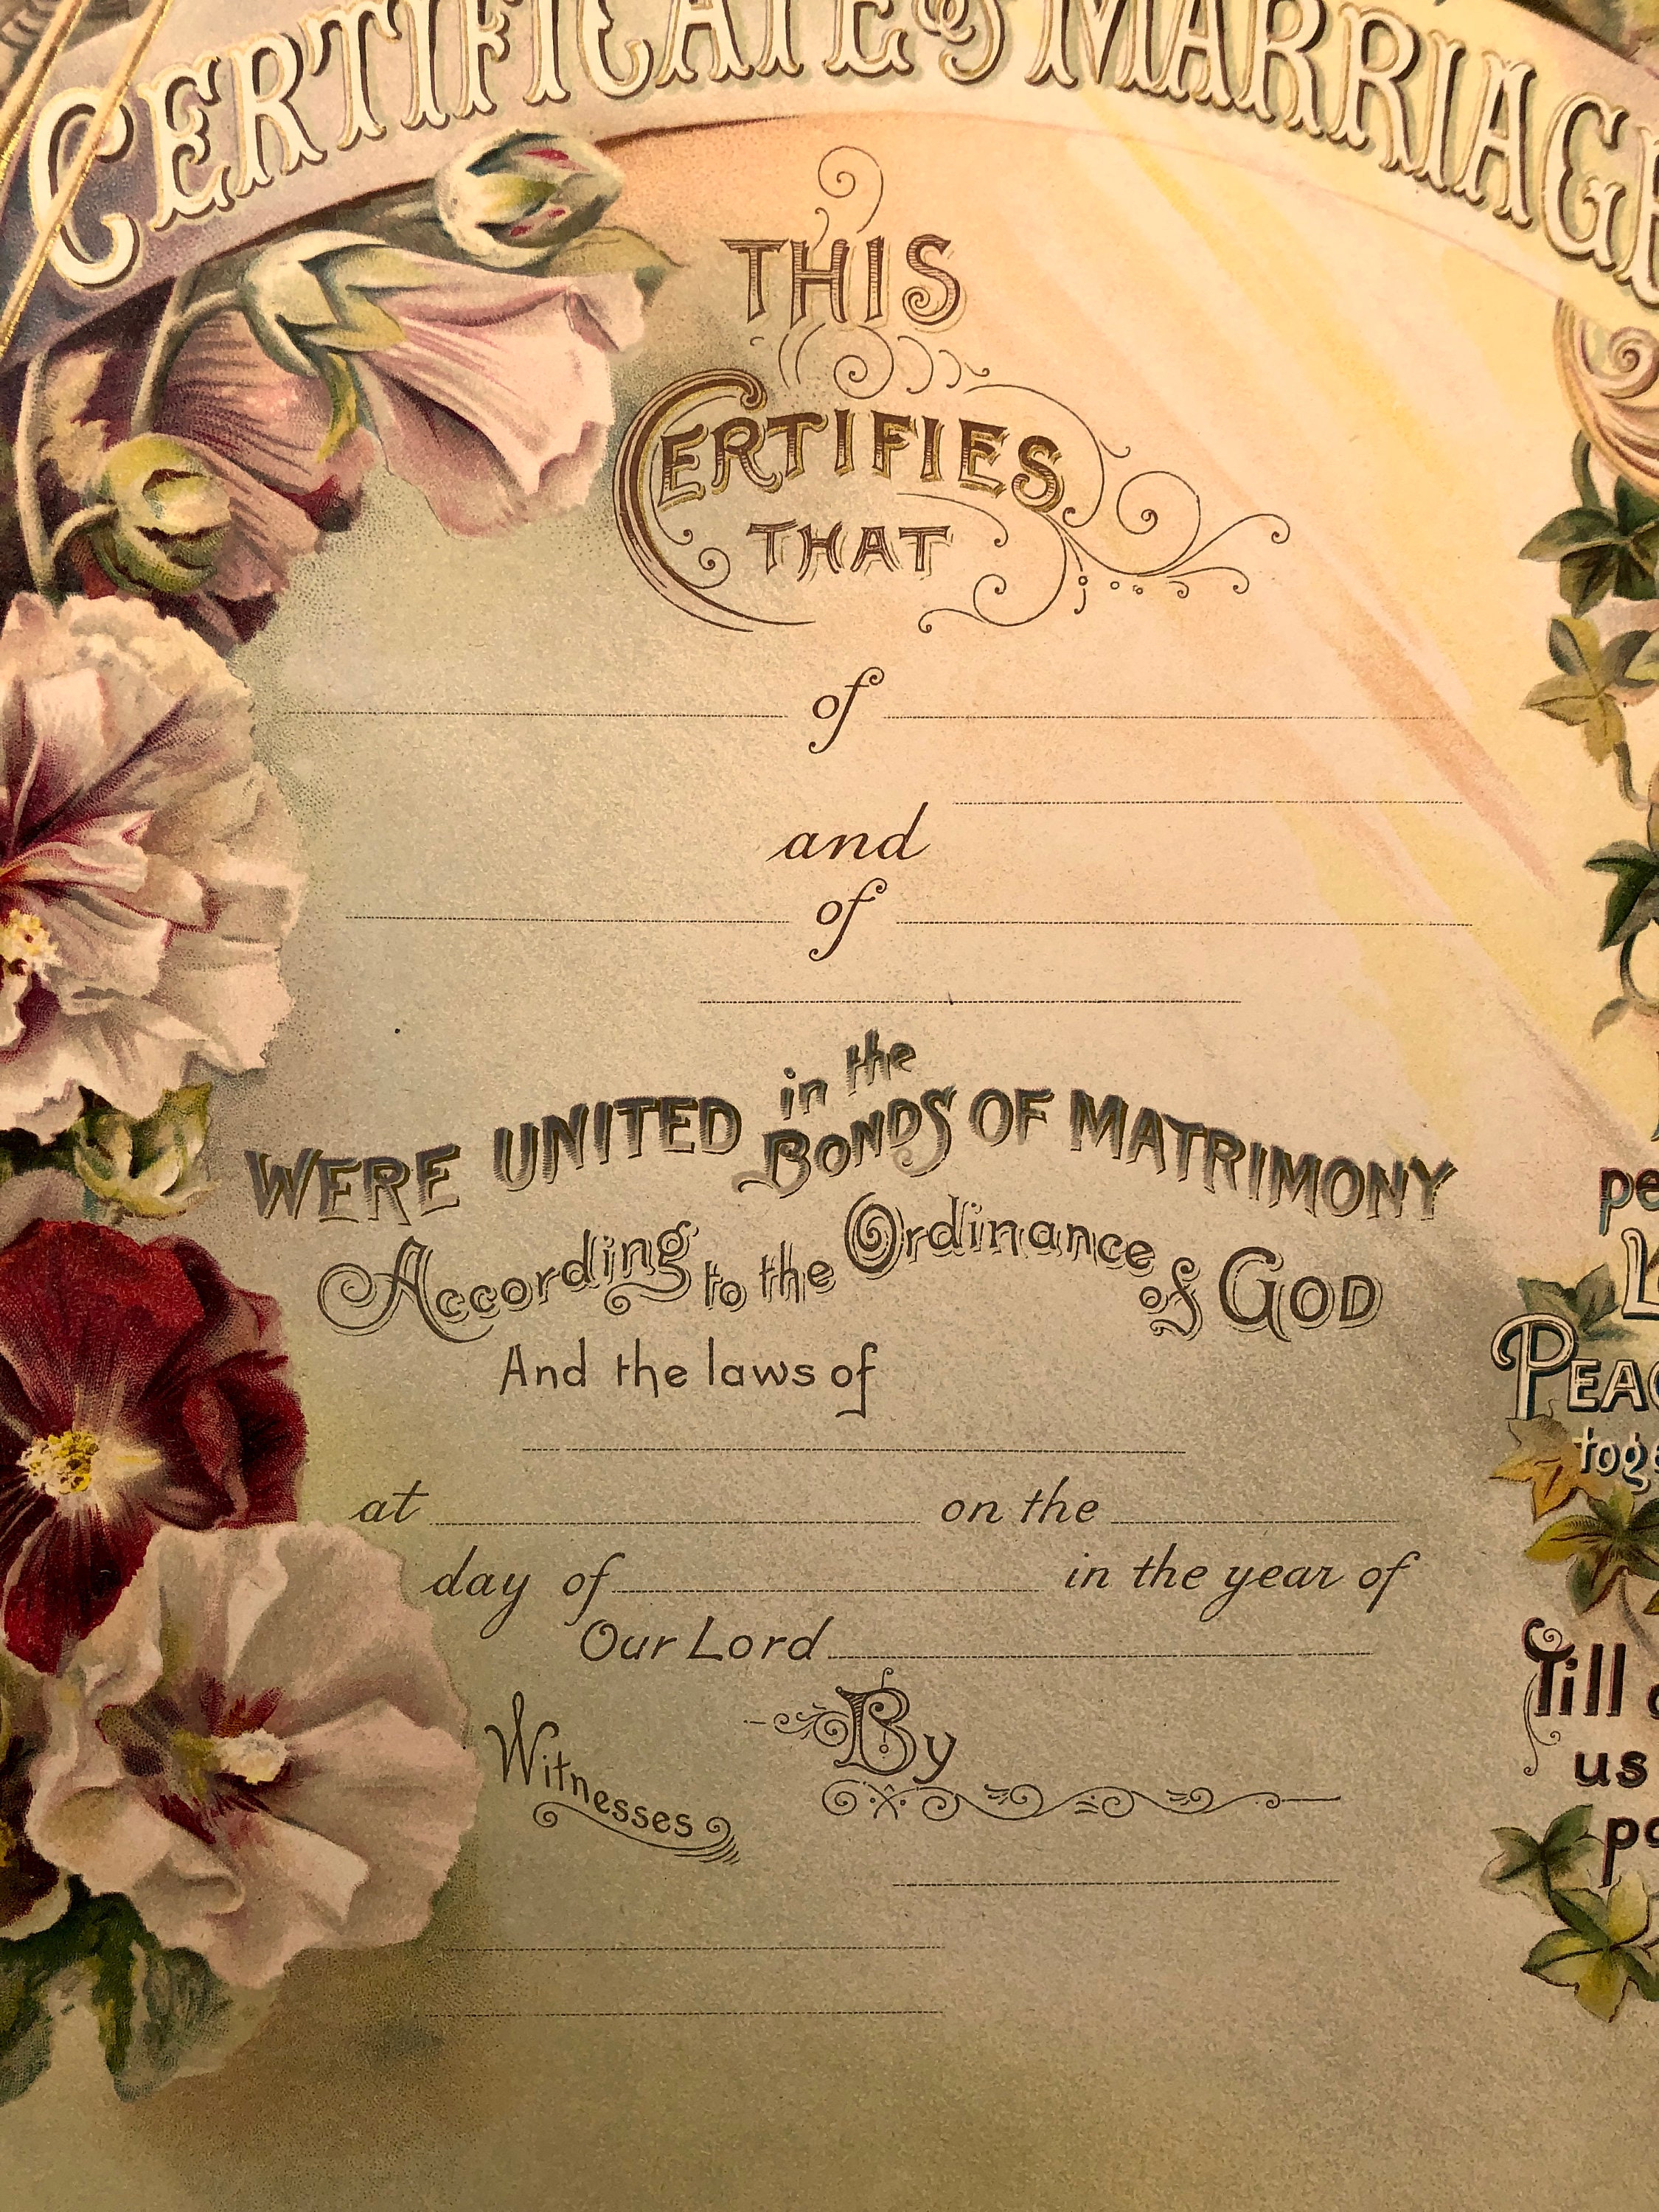 CERTIFICATE of MARRIAGE
THIS
CERTIFIES
THAT
of
and
of
WERE UNITED in the BONDS OF MATRIMONY
According to the Ordinance of GOD
And the laws of
at on the
day of in the year of
Our Lord
Witnesses By
Till
us